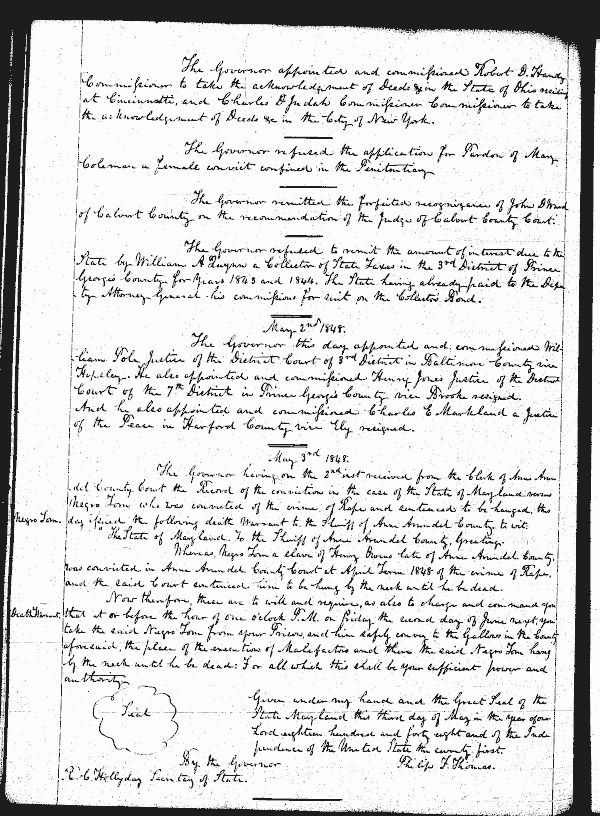 The Governor appointed and commissioned Robert D. Handy
Commissioner to take the acknowledgement of Deeds &c in the State of Ohio residing
at Cincinnatti, and Charles D Judah Commissioner Commissioner to take
the acknowledgement of Deeds &c in the City of New York.
The Governor refused the application for Pardon of Mary
Coleman a female convict confined in the Penitentiary
The Governor remitted the forfeited recognizance of John D Wood
of Calvert County on the recommendation of the Judge of Calvert County Court.
The Governor refused to remit the amount of interest due to the
State by William A Quynn a Collector of State Taxes in the 3rd District of Prince
Georges County for years 1843 and 1844. The State having already paid to the Depu
ty Attorney General his commissions for suit on the Collectors Bond.
May 2nd 1848.
The Governor this day appointed and commissioned Wil-
liam Pole Justice of the District Court of 3rd District in Baltimore County vice
Hipsley. He also appointed and commissioned Henry Jones Justice of the District
Court of the 7th District in Prince Georges County vice Brooke resigned.
And he also appointed and commissioned Charles E Markland a Justice
of the Peace in Harford County vice Ely resigned.
May 3rd 1848.
The Governor having on the 2nd inst received from the Clerk of Anne Arun
del County Court the Record of the conviction in the case of the State of Maryland versus
Negro Tom who was convicted of the crime of Rape and sentenced to be hanged, this
Negro Tom.
day issued the following death Warrant to the Sheriff of Anne Arundel County to wit.
"The State of Maryland To the Sheriff of Anne Arundel County, Greeting.
Whereas, Negro Tom a slave of Henry Owens late of Anne Arundel County,
was convicted in Anne Arundel County Court at April Term 1848 of the crime of Rape,
and the said Court sentenced him to be hung by the neck until he be dead.
Now therefore, these are to will and require, as also to charge and command you
Death Warrant.
that at or before the hour of one o'clock P.M. on Friday the second day of June next, you
take the said Negro Tom from your Prison, and him safely convey to the Gallows in the County
aforesaid, the place of the execution of Malefactors and there the said Negro Tom hang
by the neck until he be dead: For all which this shall be your sufficient power and
authority
Seal
Given under my hand and the Great Seal of the
State Maryland this third day of May in the year of our
Lord eighteen hundred and forty eight and of the Inde
pendence of the United State the seventy first.
By the Governor
Philip F. Thomas.
Hollyday Secretary of State.